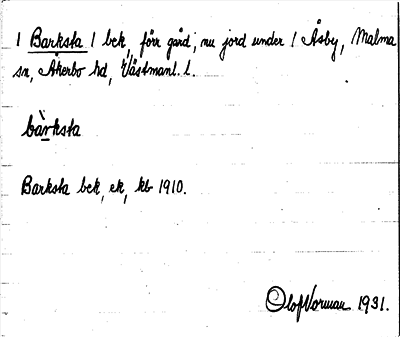 1 Barksta / bek, förr gård, nu jord under 1 Åsby, Malma
sn, Åkerbo hd, Västmanl. l.
bàrksta
Barksta bek, ek, kb 1910.
Olof Norman 1931.